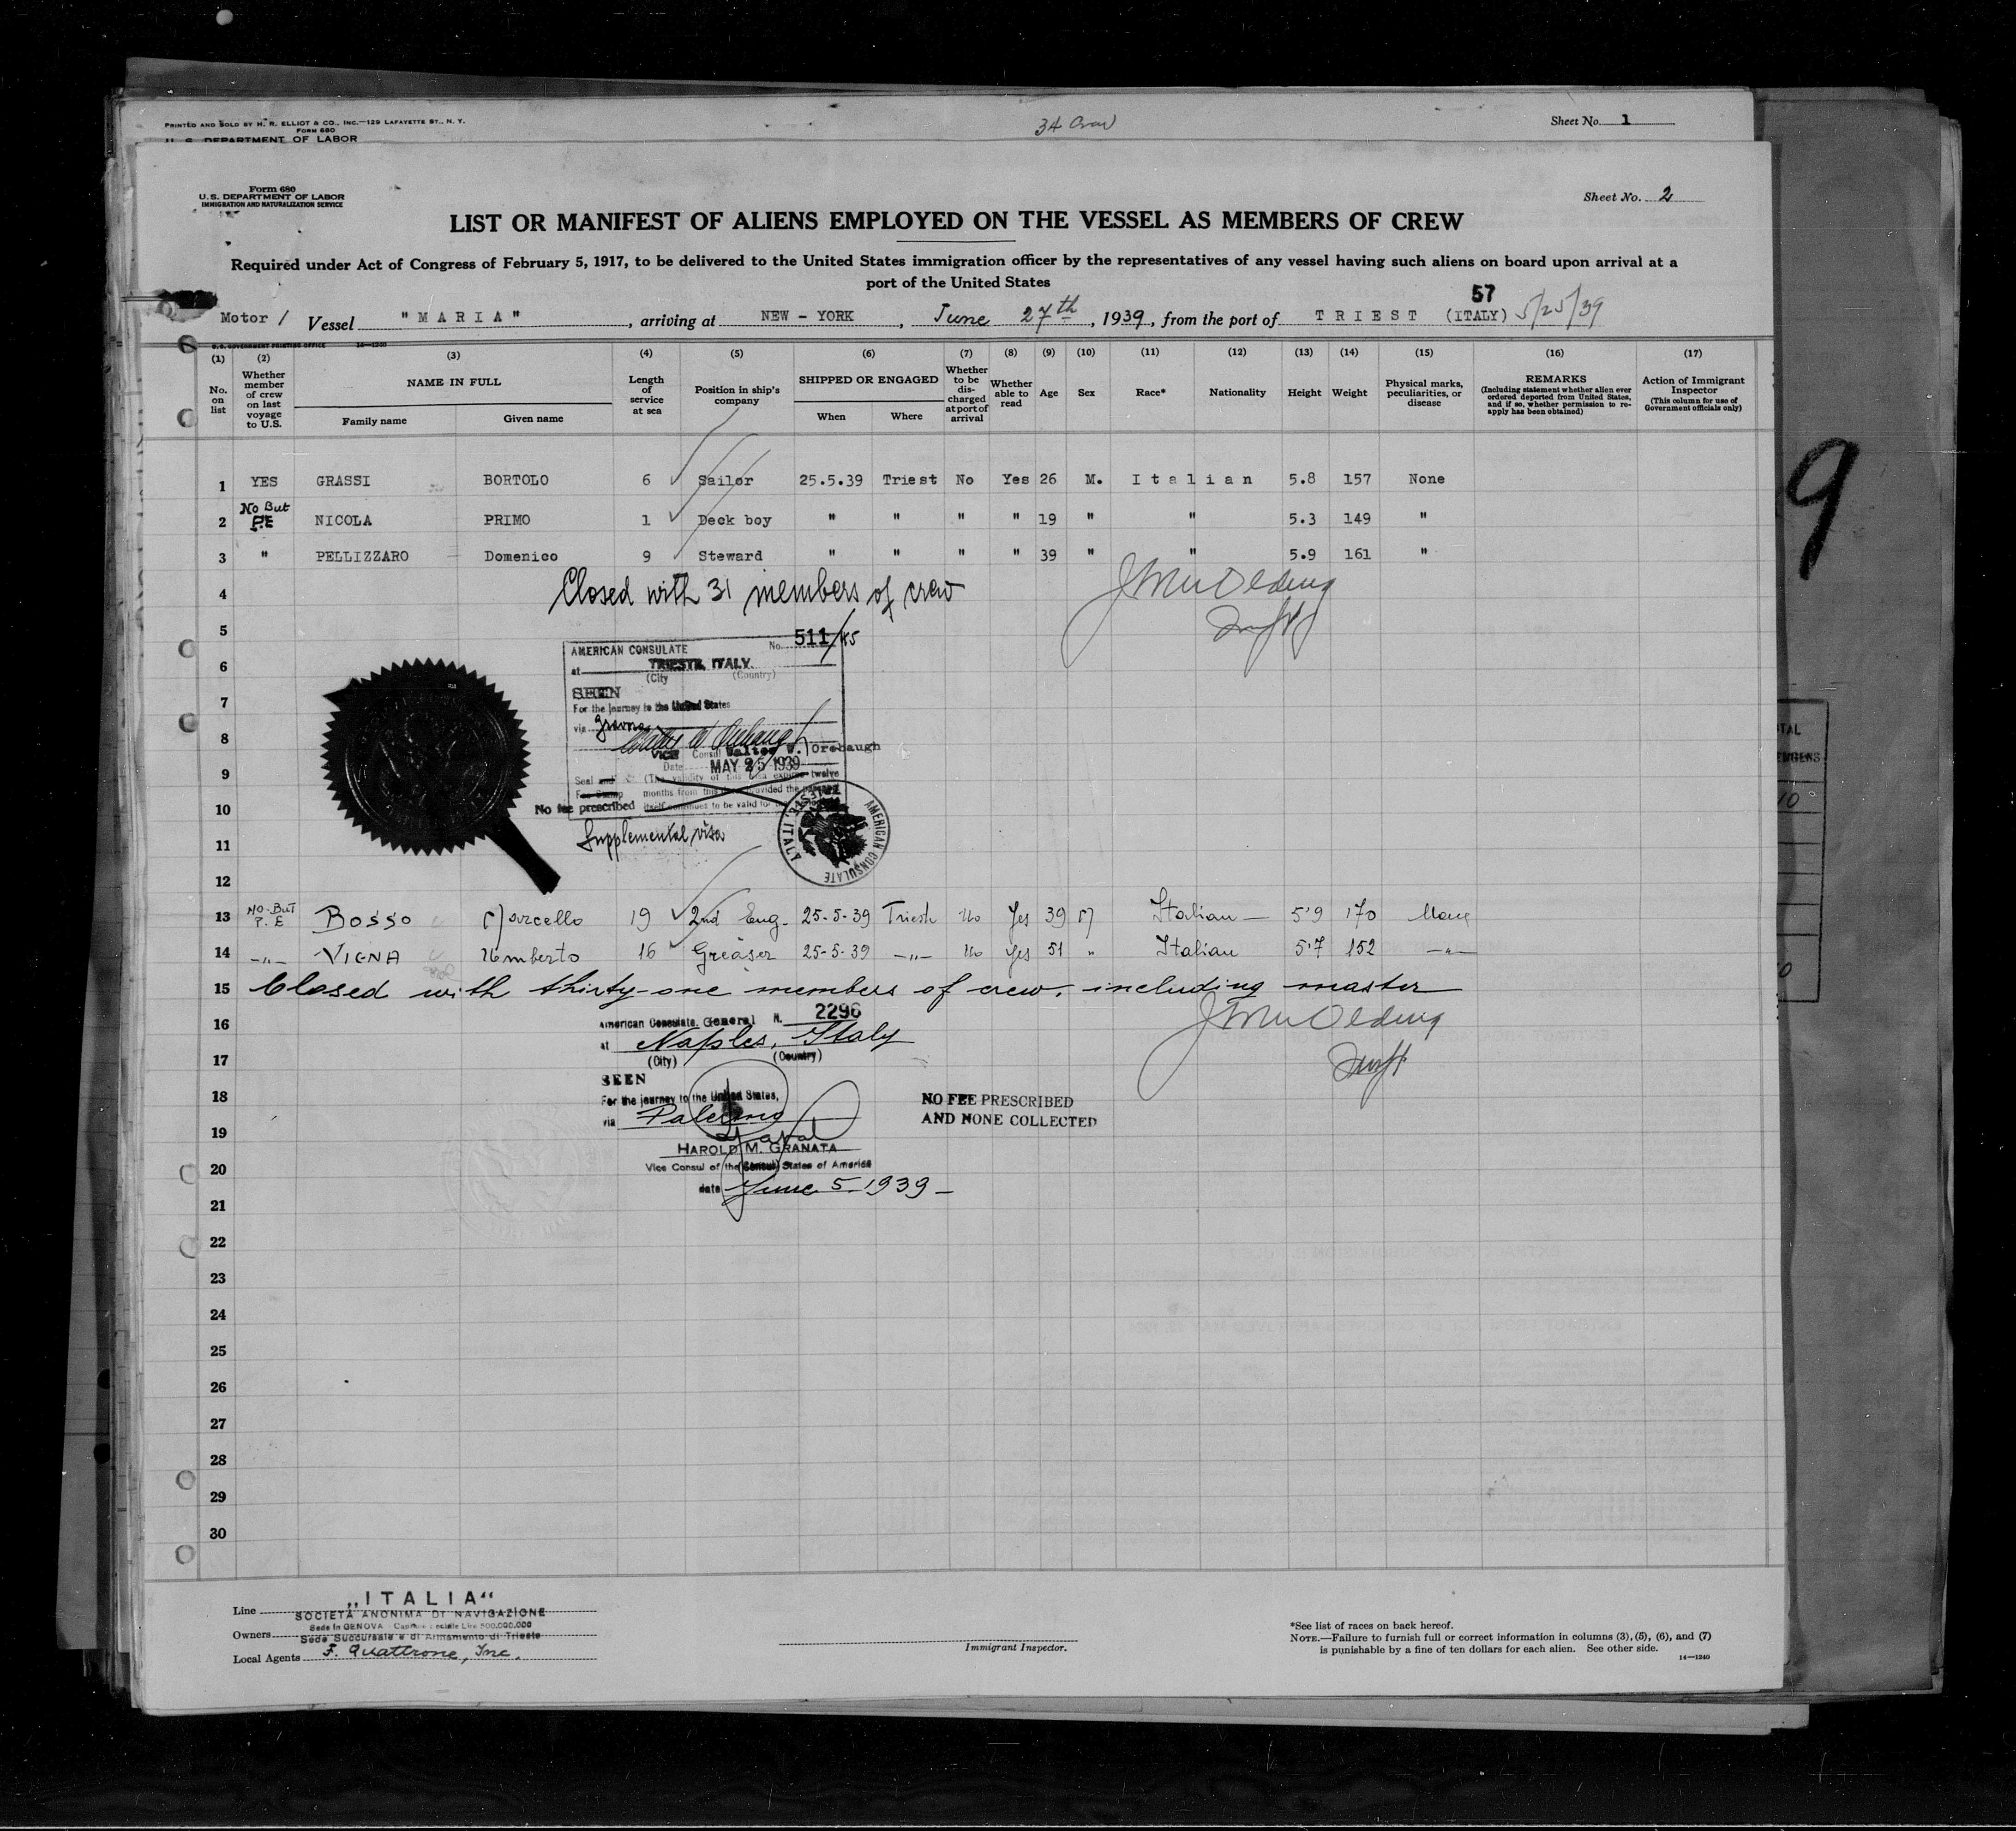 PRINTED AND SOLD BY H. R. ELLIOT & CO., INC.—129 LAFAYETTE ST., N. Y.
FORM 680
U. S. DEPARTMENT OF LABOR
34 Crew
Sheet No. 1
Form 680
U. S. DEPARTMENT OF LABOR
IMMIGRATION AND NATURALIZATION SERVICE
Sheet No. 2
LIST OR MANIFEST OF ALIENS EMPLOYED ON THE VESSEL AS MEMBERS OF CREW
Required under Act of Congress of February 5, 1917, to be delivered to the United States immigration officer by the representatives of any vessel having such aliens on board upon arrival at a
port of the United States
57
Motor / Vessel "MARIA", arriving at NEW - YORK, June 27th, 1939, from the port of TRIEST (ITALY) 5/25/39
U. S. GOVERNMENT PRINTING OFFICE 14—1240
(1) (2) (3) (4) (5) (6) (7) (8) (9) (10) (11) (12) (13) (14) (15) (16) (17)
No. on list
Whether member of crew on last voyage to U.S.
NAME IN FULL
Family name
Given name
Length of service at sea
Position in ship's company
SHIPPED OR ENGAGED
When
Where
Whether to be discharged at port of arrival
Whether able to read
Age
Sex
Race*
Nationality
Height
Weight
Physical marks, peculiarities, or disease
REMARKS
(Including statement whether alien ever ordered deported from United States, and if so, whether permission to re-apply has been obtained)
Action of Immigrant Inspector
(This column for use of Government officials only)
1 YES GRASSI BORTOLO 6 Sailor 25.5.39 Triest No Yes 26 M. Italian 5.8 157 None
2 No But P.E NICOLA PRIMO 1 Deck boy " " " " 19 " " 5.3 149 "
3 " PELLIZZARO Domenico 9 Steward " " " " 39 " " 5.9 161 "
4 Closed with 31 members of crew
5
6
7
8
9
10
11
12
AMERICAN CONSULATE No. 511/45
at TRIESTE, ITALY.
(City (Country)
SEEN
For the journey to the United States
via
VICE Consul Walter W. Orebaugh
Date MAY 25 1939
Seal and
Fee Stamp
(The validity of this visa expires twelve
months from this date provided the
itself continues to be valid for
No fee prescribed
Supplemental visa
AMERICAN CONSULATE TRIESTE, ITALY
13 NO-BUT P.E BOSSO Marcello 19 2nd Eng. 25-5-39 Triest No Yes 39 M Italian 5'9 170 None
14 -"- VIGNA Umberto 16 Greaser 25-5-39 -"- No Yes 51 " Italian 5'7 152 -"-
15 Closed with thirty-one members of crew, including master
16
17
18
19
20
21
22
23
24
25
26
27
28
29
30
American Consulate General N. 2296
at Naples, Italy
(City) (Country)
SEEN
For the journey to the United States,
via Palermo
HAROLD M. GRANATA
Vice Consul of the United States of America
date June 5 1939
NO FEE PRESCRIBED
AND NONE COLLECTED
9
10
Line „ITALIA“
SOCIETÀ ANONIMA DI NAVIGAZIONE
Sede in GENOVA - Capitale sociale Lire 500.000.000
Owners Sede Succursale e di Armamento di Trieste
Local Agents F. Quattrone, Inc.
Immigrant Inspector.
*See list of races on back hereof.
NOTE.—Failure to furnish full or correct information in columns (3), (5), (6), and (7)
is punishable by a fine of ten dollars for each alien. See other side.
14—1240